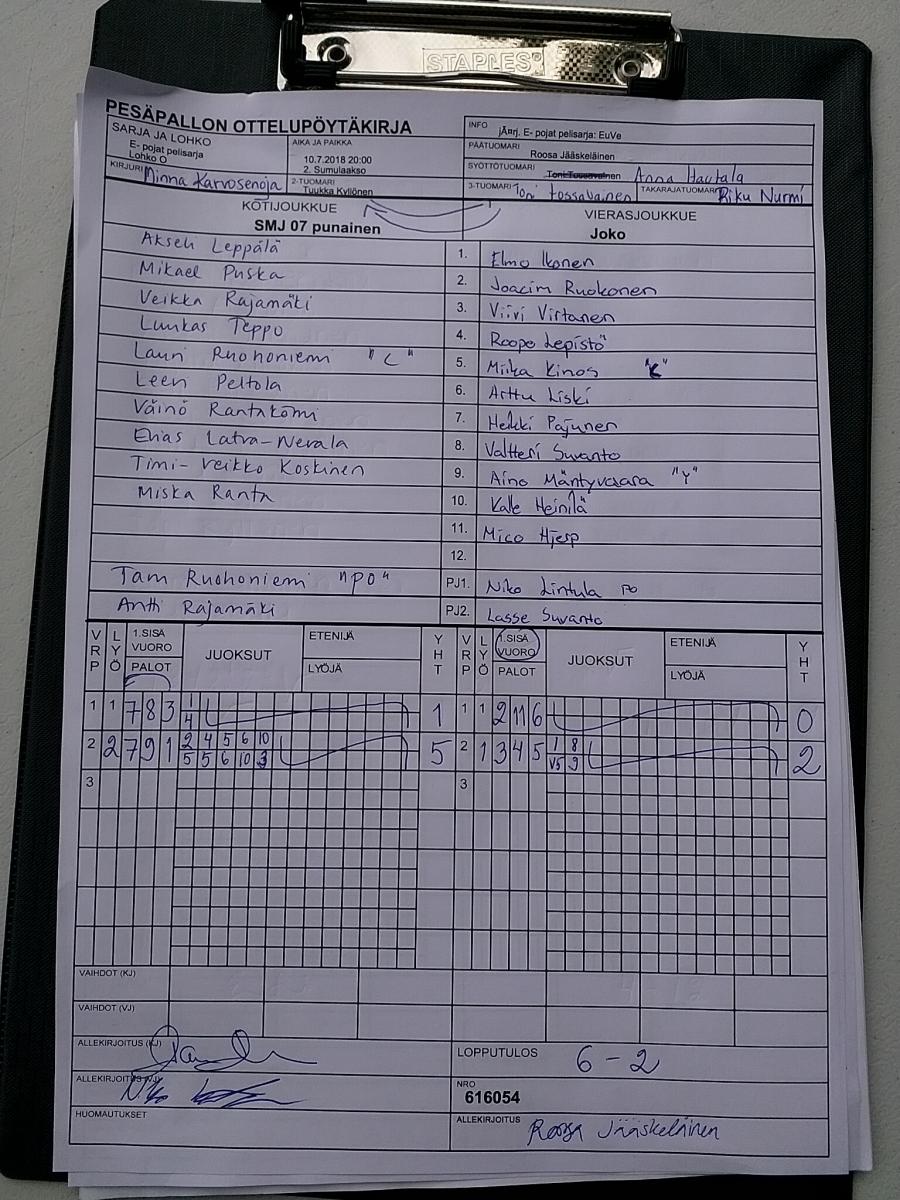 STAPLES®
PESÄPALLON OTTELUPÖYTÄKIRJA
SARJA JA LOHKO
E- pojat pelisarja
Lohko O
AIKA JA PAIKKA
10.7.2018 20:00
2. Sumulaakso
INFO jÃ¤rj. E- pojat pelisarja: EuVe
PÄÄTUOMARI
Roosa Jääskeläinen
SYÖTTÖTUOMARI Toni Tossavainen Anna Hautala
KIRJURI Minna Karvosenoja
2-TUOMARI
Tuukka Kyllönen
3-TUOMARI Toni Tossavainen
TAKARAJATUOMARI Riku Nurmi
KOTIJOUKKUE
SMJ 07 punainen
VIERASJOUKKUE
Joko
Akseli Leppälä 1. Elmo Ikonen
Mikael Puska 2. Joacim Ruokonen
Veikka Rajamäki 3. Viivi Virtanen
Luukas Teppo 4. Roope Lepistö
Lauri Ruohoniemi "C" 5. Miika Kinos "C"
Leevi Peltola 6. Arttu Liski
Väinö Rantakömi 7. Heikki Pajunen
Elias Latva-Nevala 8. Valtteri Suvanto
Timi-Veikko Koskinen 9. Aino Mäntyvaara "Y"
Miska Ranta 10. Kalle Heinilä
11. Mico Hjesp
12.
Tam Ruohoniemi "PO" PJ1. Niko Lintula PO
Antti Rajamäki PJ2. Lasse Suvanto
VRP LYÖ 1.SISÄ VUORO PALOT JUOKSUT ETENIJÄ LYÖJÄ YHT VRP LYÖ 1.SISÄ VUORO PALOT JUOKSUT ETENIJÄ LYÖJÄ YHT
1 1 7 8 3 1 1 1 2 11 6 0
4
2 2 7 9 1 2 4 5 6 10 5 2 1 3 4 5 1 8 2
5 5 6 10 3 V5 9
3 3
VAIHDOT (KJ)
VAIHDOT (VJ)
ALLEKIRJOITUS (KJ)
LOPPUTULOS 6 - 2
ALLEKIRJOITUS (VJ)
NRO
616054
HUOMAUTUKSET
ALLEKIRJOITUS
Roosa Jääskeläinen